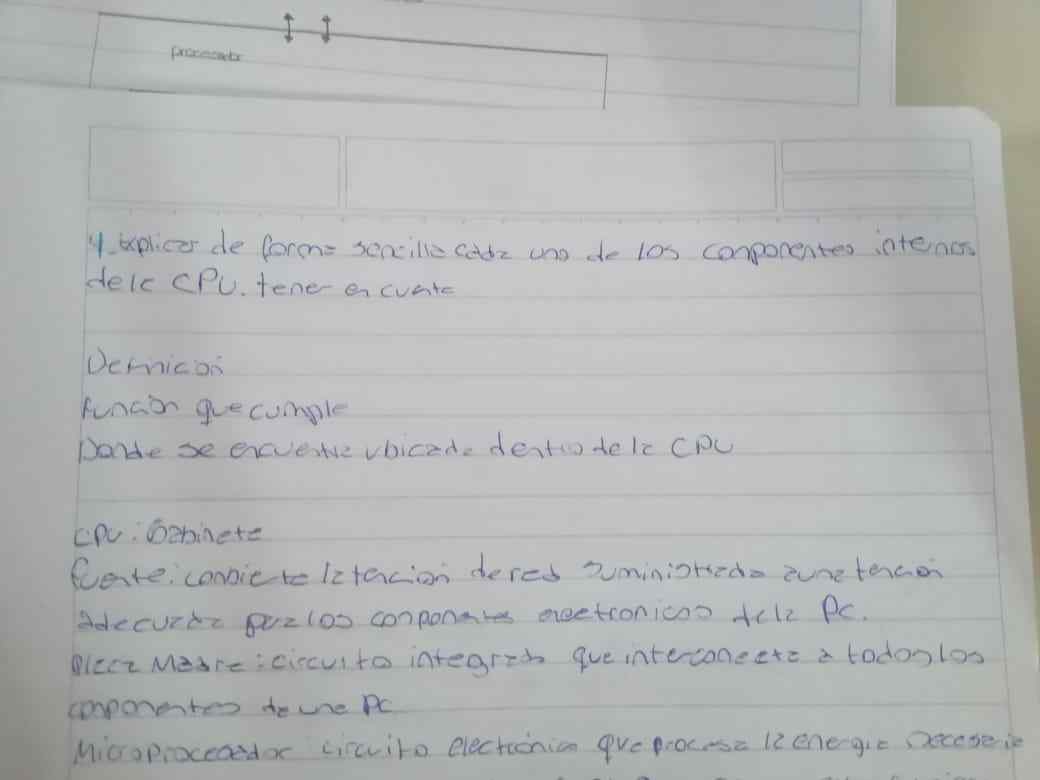 procesador
4. explicar de forma sencilla cada uno de los componentes internos
de la CPU. tener en cuenta
Definicion
Función que cumple
Donde se encuentra ubicada dentro de la CPU
CPU: Gabinete
fuente: convierte la tencion de red suministrada a una tencion
adecuada para los componentes electronicos de la PC.
placa Madre: circuito integrado que interconecta a todos los
componentes de una PC
Microprocesador circuito electrónico que procesa la energia necesaria